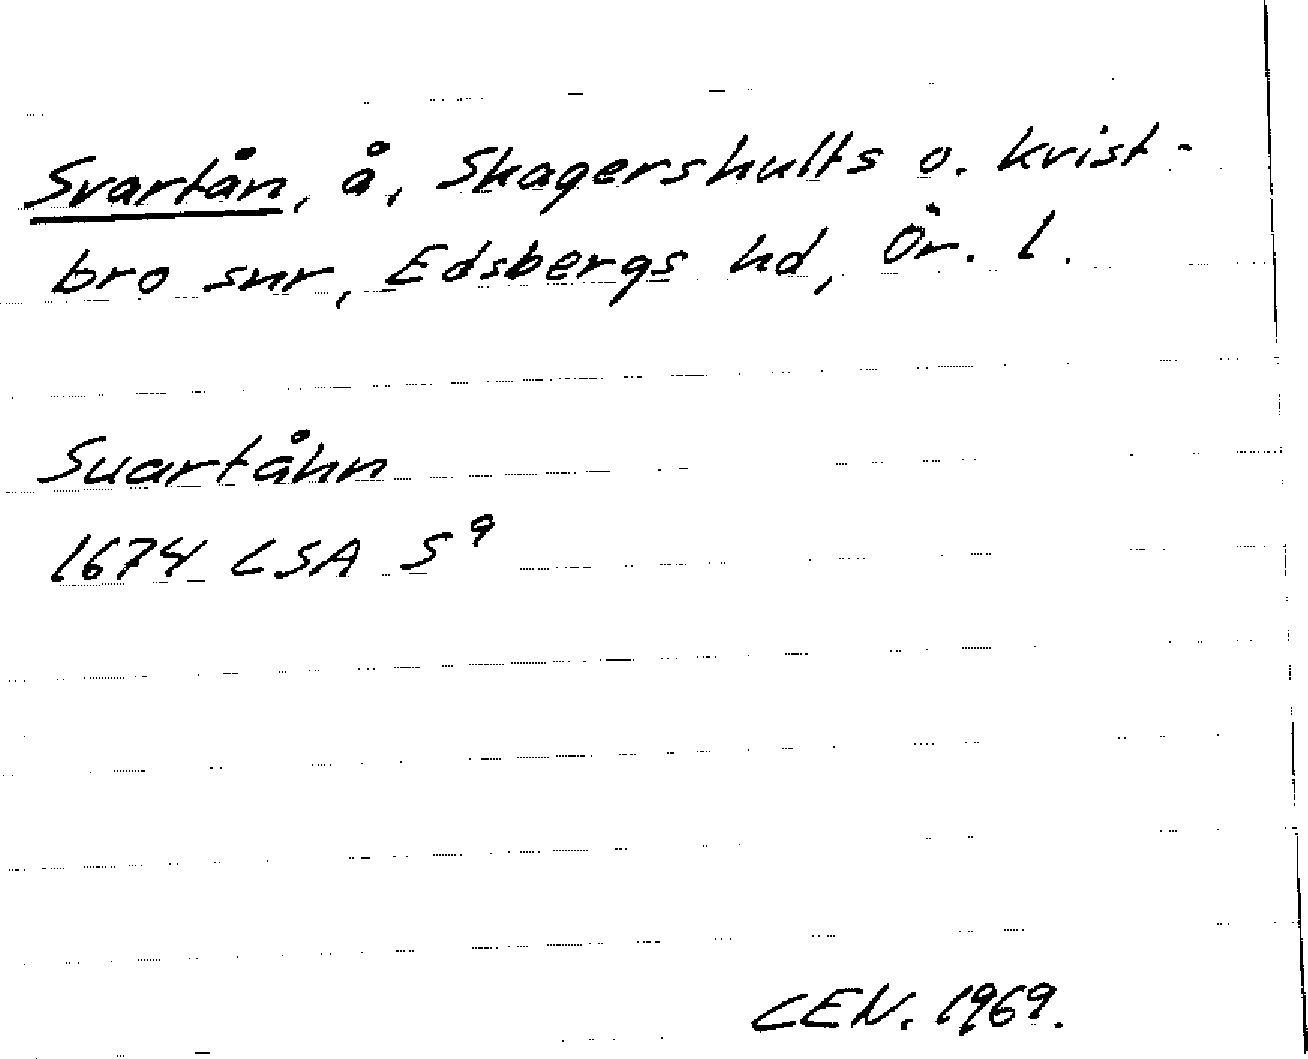 Svartån, å, Skagershults o. Kvist-
bro snr, Edsbergs hd, Ör. l.
Suartåhn
1674 LSA S 9
CEN. 1969.